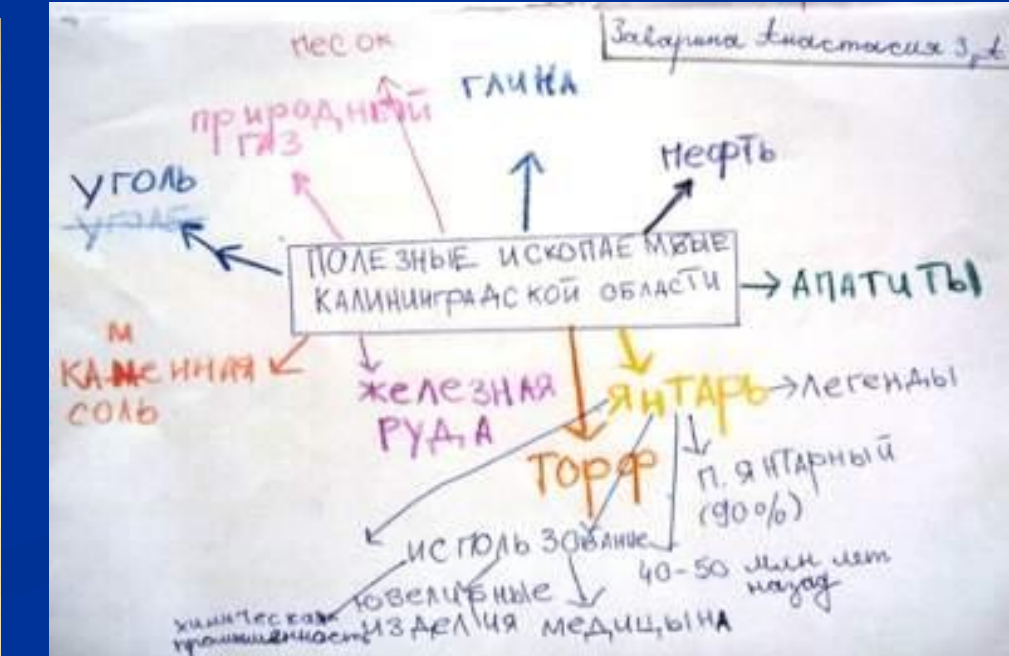 Заварина Анастасия 3 А
песок
глина
природный
газ
нефть
уголь
уголь
ПОЛЕЗНЫЕ ИСКОПАЕМЫЕ
КАЛИНИНГРАДСКОЙ ОБЛАСТИ
АПАТИТЫ
М
КАМЕННАЯ
СОЛЬ
железная
РУДА
ЯНТАРЬ
легенды
ТОРФ
П. ЯНТАРНЫЙ
(90%)
использование
40-50 млн лет
назад
химическая
промышленность
ювелирные
изделия
медицына